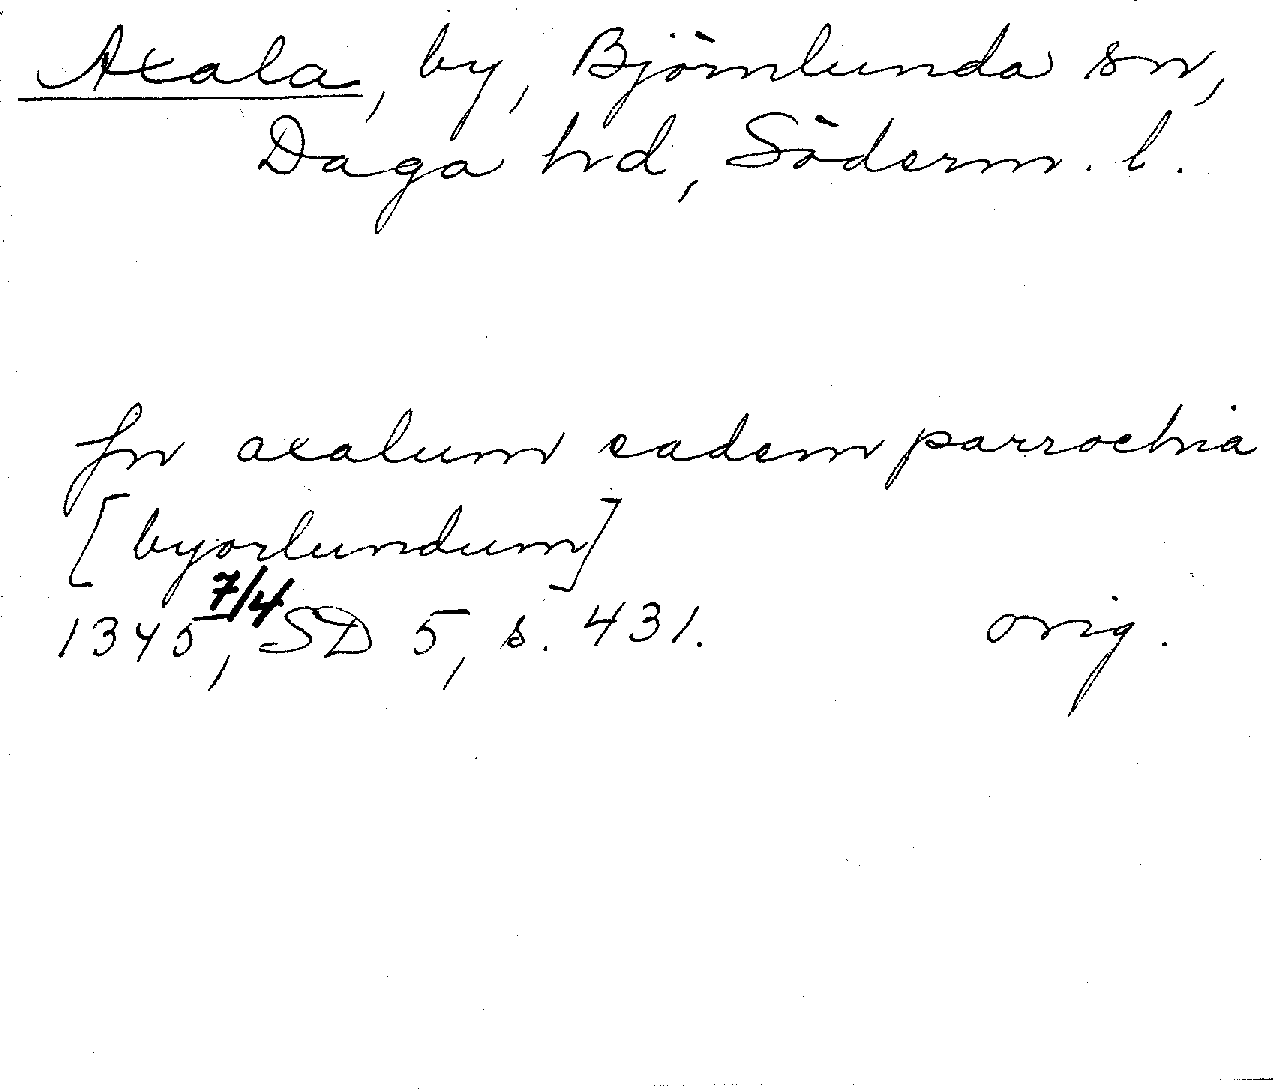 Axala, by, Björnlunda sn,
Daga hd, Söderm. l.
jn axalum eadem parrochia
[byorlundum]
1345 7/4, SD 5, s. 431. orig.